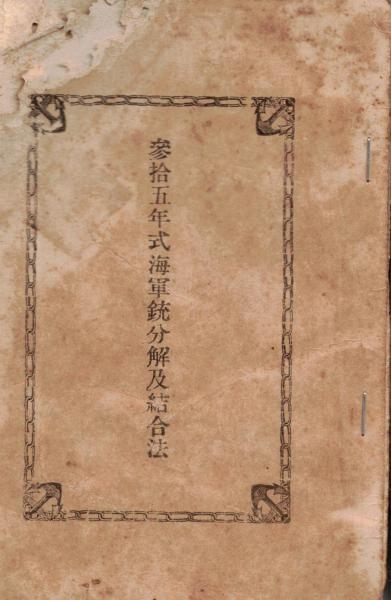 參拾五年式海軍銃分解及結合法